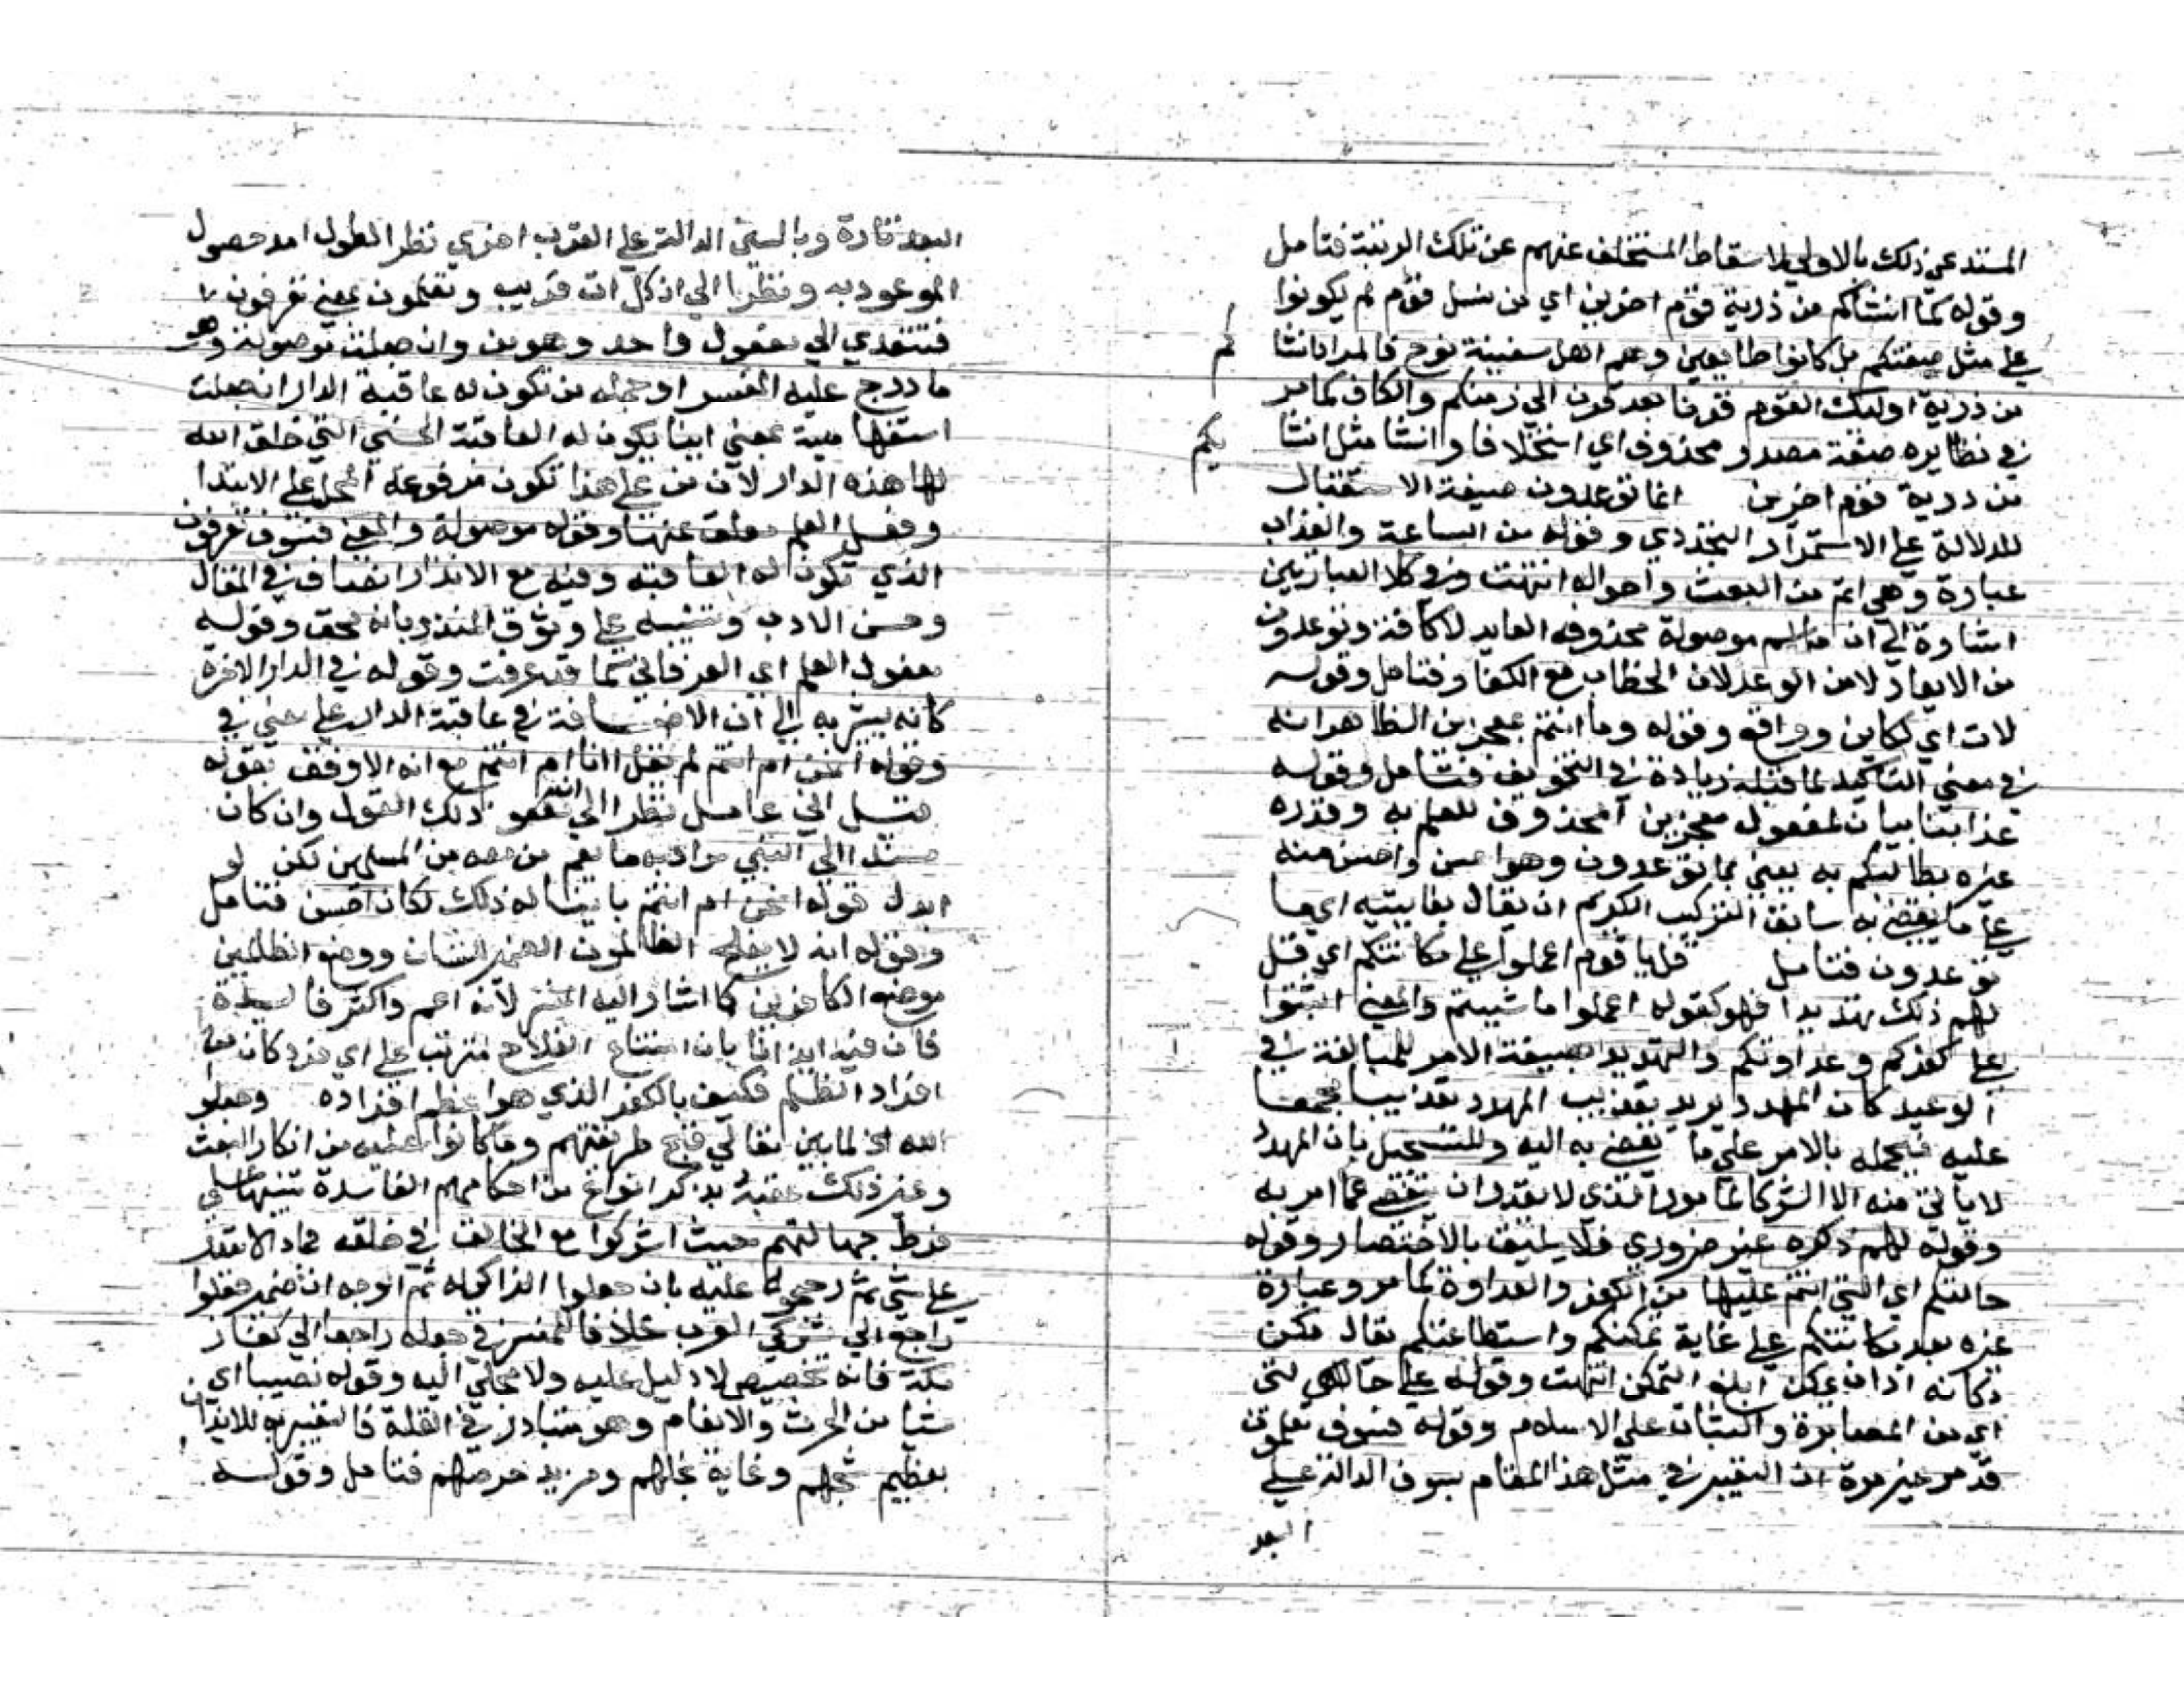 المستدعي ذلك بالاولي لاسقاط المستخلف عنهم عن تلك الرتبة فتامل
وقوله كما انشاكم من ذرية قوم اخرين اي من نسل قوم لم يكونوا
علي مثل صفتكم بل كانوا طايعين وهم اهل سفينة نوح فالمراد انشا
كم
من ذرية اوليك القوم قرنا بعد قرن الي زمنكم والكاف كما مر
في نظايره صفة مصدر محذوف اي استخلافا وانشا مثل انشا
يكم
من ذرية قوم اخرين انما توعدون صيغة الاستقبال
للدلالة علي الاستمرار التجددي وقوله من الساعة والعذاب
عبارة وهي اتم من البعث واحواله انتهت وفي كلا العبارتين
اشارة الي ان ما اسم موصولة محذوفه العايد لا كافة وتوعدون
من الايعاد لا من الوعد لان الخطاب مع الكفار فتامل وقوله
لات اي لكاين وواقع وقوله وما انتم بمعجزين الظاهر انه
في معني التاكيد لما قبله زيادة في التخويف فتامل وقوله
عذابنا بيان لمفعول معجزين المحذوف للعلم به وقدره
غيره بطالبكم به يعني بما توعدون وهو احسن واحسن منه
علي ما يقضي به سابق التركيب الكريم ان يقال بفاييته اي ما
توعدون فتامل قل يا قوم اعملوا علي مكانتكم اي قل
لهم ذلك تهديدا فهو كقوله اعملوا ما شيتم والمعني اثبتوا
علي كفركم وعداوتكم والتهديد بصيغة الامر للمبالغة في
الوعيد كان المهدد يريد تعذيب المهدد تعذيبا مجمعا
عليه فيحمله بالامر علي ما يفضي به اليه وللتسجيل بان المهدد
لا ياتي منه الا الشر كالمامور الذي لا يقدر ان يتفصي عما امر به
وقوله لهم ذكره غير ضروري فلا يليق بالاختصار وقوله
حالتكم اي التي انتم عليها من الكفر والعداوة كما مر وعبارة
غيره بعد مكانتكم علي غاية تمكنكم واستطاعتكم يقال مكن
مكانة اذا تمكن ابلغ التمكن انتهت وقوله علي حالتي التي
اي من المصابرة والثبات علي الاسلام وقوله فسوف تعلمون
قد مر غير مرة ان التعبير في مثل هذا المقام بسوف الدالة علي
البعد
البعد تارة وبالسين الدالة علي القرب اخري نظرا لطول امد حصول
الموعود به ونظرا الي ان كل ات قريب وتعلمون بمعني تعرفون
فتتعدي الي مفعول واحد وهو من وان جعلت موصولة وهو
ما درج عليه المفسر او جملة من تكون له عاقبة الدار ان جعلت
استفهامية بمعني اينا يكون له العاقبة الحسني التي خلق الله
لها هذه الدار لان من علي هذا تكون مرفوعة المحل علي الابتدا
وفعل العلم معلق عنها وقوله موصولة والمعني فسوف تعرفون
الذي تكون له العاقبة وفيه مع الانذار انصاف في المقال
وحسن الادب وتنبيه علي وثوق المنذر بانه محق وقوله
مفعول العلم اي العرفاني كما قد عرفت وقوله في الدار الاخرة
كانه يشير به الي ان الاضافة في عاقبة الدار علي معني في
وقوله انحن ام انتم لم يقل اانا ام انتم مع انه الاوفق بقوله
قبل اني عامل نظرا الي ذلك القول وان كان
مسندا الي النبي مراد به ما يعم من معه من المسلمين لكن لو
ابدل قوله انحن ام انتم باينا له ذلك لكان احسن فتامل
وقوله انه لا يفلح الظالمون الضمير للشان ووضع الظالمين
موضع الكافرين كما اشار اليه المفسر لانه اعم واكثر فايدة
فان فيه ايذانا بان امتناع الفلاح مترتب علي اي فرد كان من
افراد الظلم فكيف بالكفر الذي هو اعظم افراده وجعلوا
لله الخ لما بين تعالي قبح طريقتهم وما كانوا عليه من انكار البعث
وغير ذلك عقبه بذكر انواع من احكامهم الفاسدة تنبيها علي
فرط جهالتهم حيث اشركوا مع الخالق في خلقه جمادا لا يقدر
علي شي ثم رجحوه عليه بان جعلوا الزاكي له ثم الوجه ان ضمير جعلوا
راجع الي مشركي العرب خلافا للمفسر في جعله راجعا الي كفار
مكة فانه تخصيص لا دليل عليه ولا ملجي اليه وقوله نصيبا اي
شيا من الحرث والانعام وهو متبادر في القلة فالتعبير به للايذان
بعظيم شحهم وغاية بخلهم ومزيد حرصهم فتامل وقوله